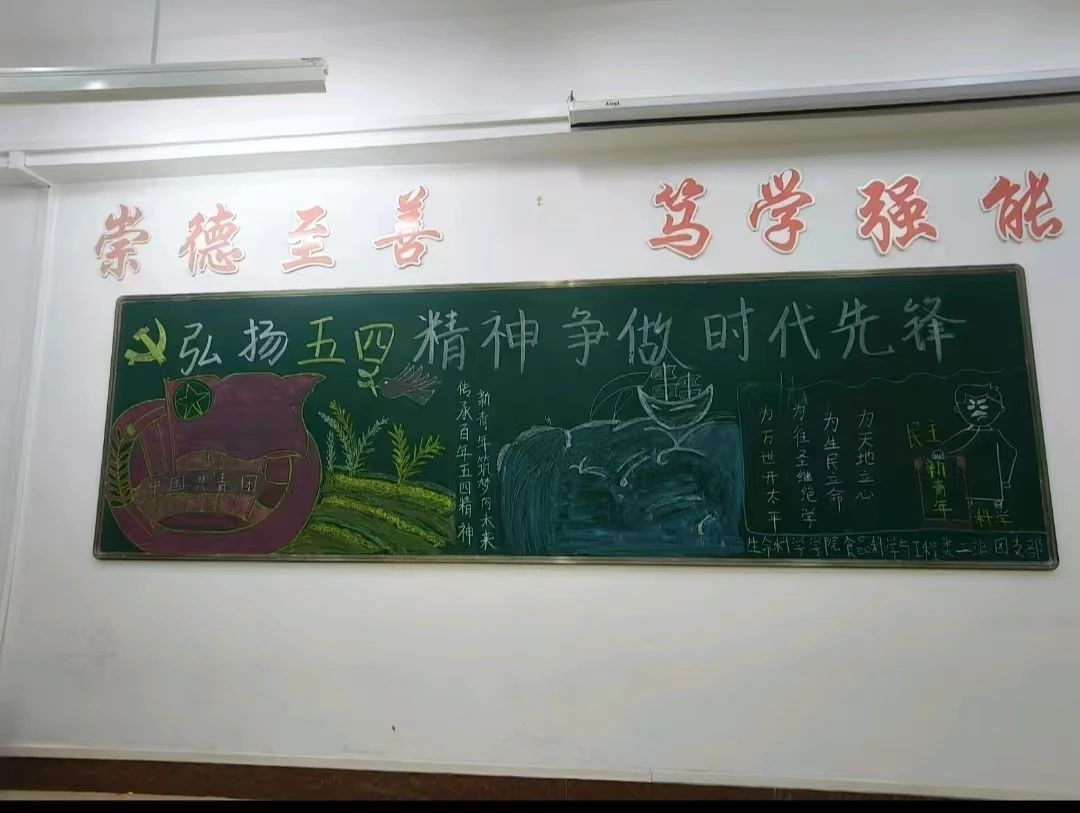 崇德至善 笃学强能
弘扬五四精神争做时代先锋
中国共青团
新青年筑梦向未来
传承百年五四精神
为天地立心
为生民立命
为往圣继绝学
为万世开太平
民主
新青年
科学
生命科学学院食品科学与工程类二班团支部